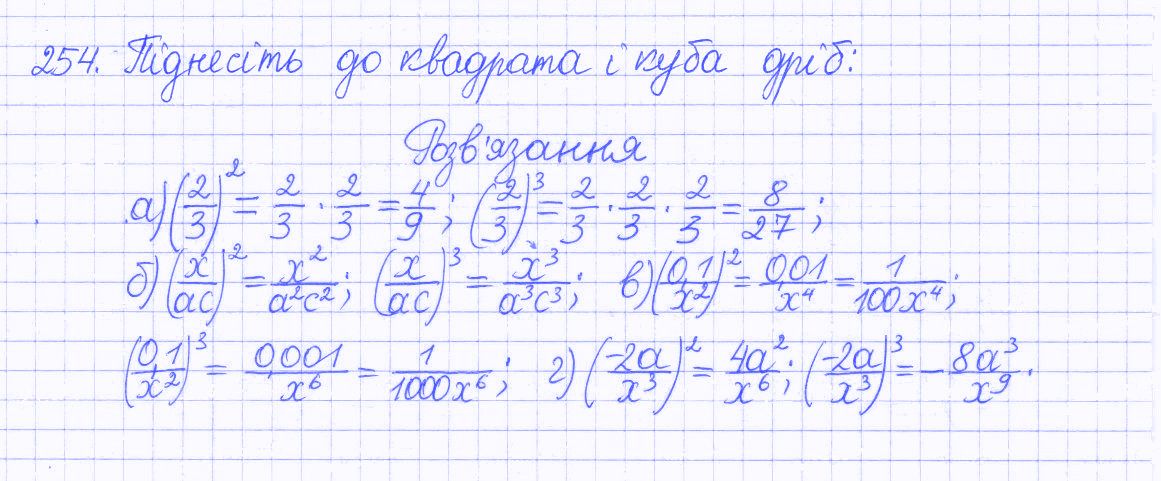 254. Піднесіть до квадрата і куба дріб:
Розв'язання
а) (2/3)² = 2/3 · 2/3 = 4/9; (2/3)³ = 2/3 · 2/3 · 2/3 = 8/27;
б) (x/ac)² = x²/a²c²; (x/ac)³ = x³/a³c³; в) (0,1/x²)² = 0,01/x⁴ = 1/100x⁴;
(0,1/x²)³ = 0,001/x⁶ = 1/1000x⁶; г) (-2a/x³)² = 4a²/x⁶; (-2a/x³)³ = -8a³/x⁹.